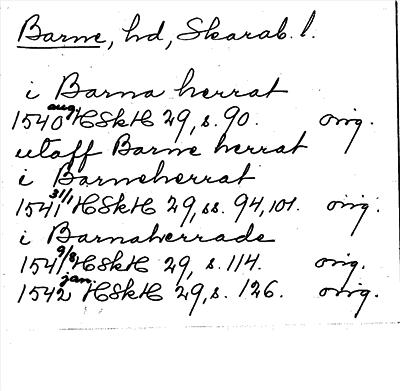 Barne, hd, Skarab. l.
i Barna herrat
1540 aug. HSkH 29, s. 90. orig.
utaff Barne herrat
i Barneherrat
1541 31/1 HSkH 29, ss. 94, 101. orig.
i Barnaherrade
1541 9/8 HSkH 29, s. 114. orig.
1542 jan. HSkH 29, s. 126. orig.